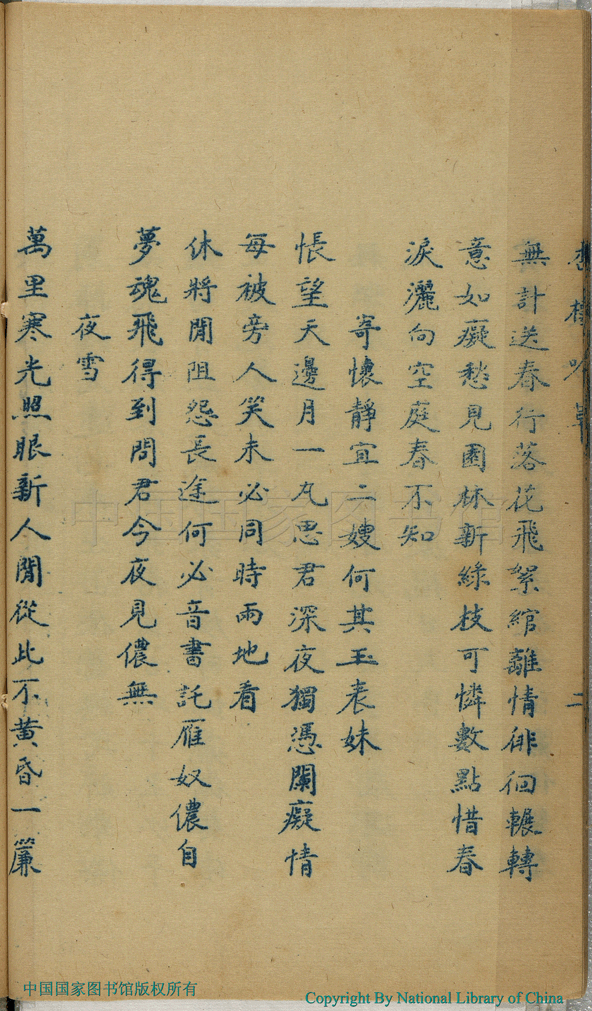 二
無計送春行落花飛絮綰離情徘徊輾轉
意如癡愁見園林新綠枝可憐數點惜春
淚灑向空庭春不知
寄懷靜宜二嫂何其玉表妹
悵望天邊月一丸思君深夜獨憑闌癡情
每被旁人笑未必同時兩地看
休將閒阻怨長途何必音書託雁奴儂自
夢魂飛得到問君今夜見儂無
夜雪
萬里寒光照眼新人閒從此不黃昏一簾
中国国家图书馆
中国国家图书馆版权所有
Copyright By National Library of China